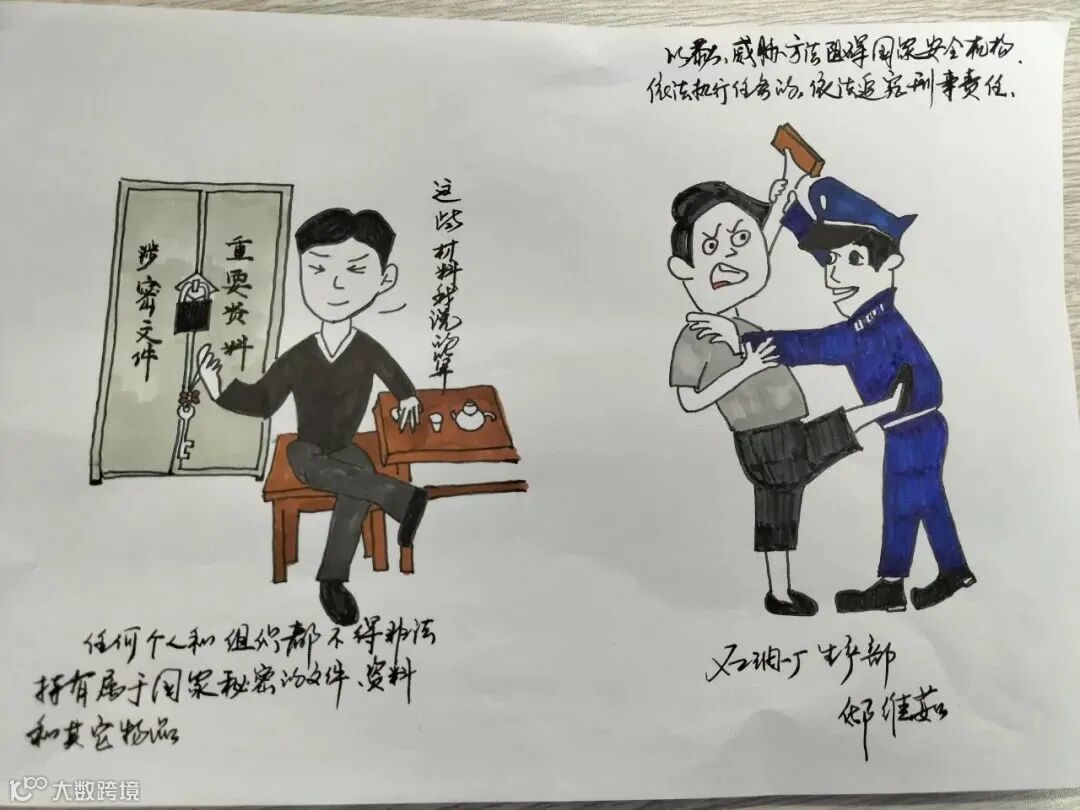 以暴力、威胁方法阻碍国家安全机构、
依法执行任务的,依法追究刑事责任.
这些材料我说的算
涉密文件
重要资料
任何个人和组织都不得非法
持有属于国家秘密的文件、资料
和其它物品
生产部
邢维茹
大数跨境